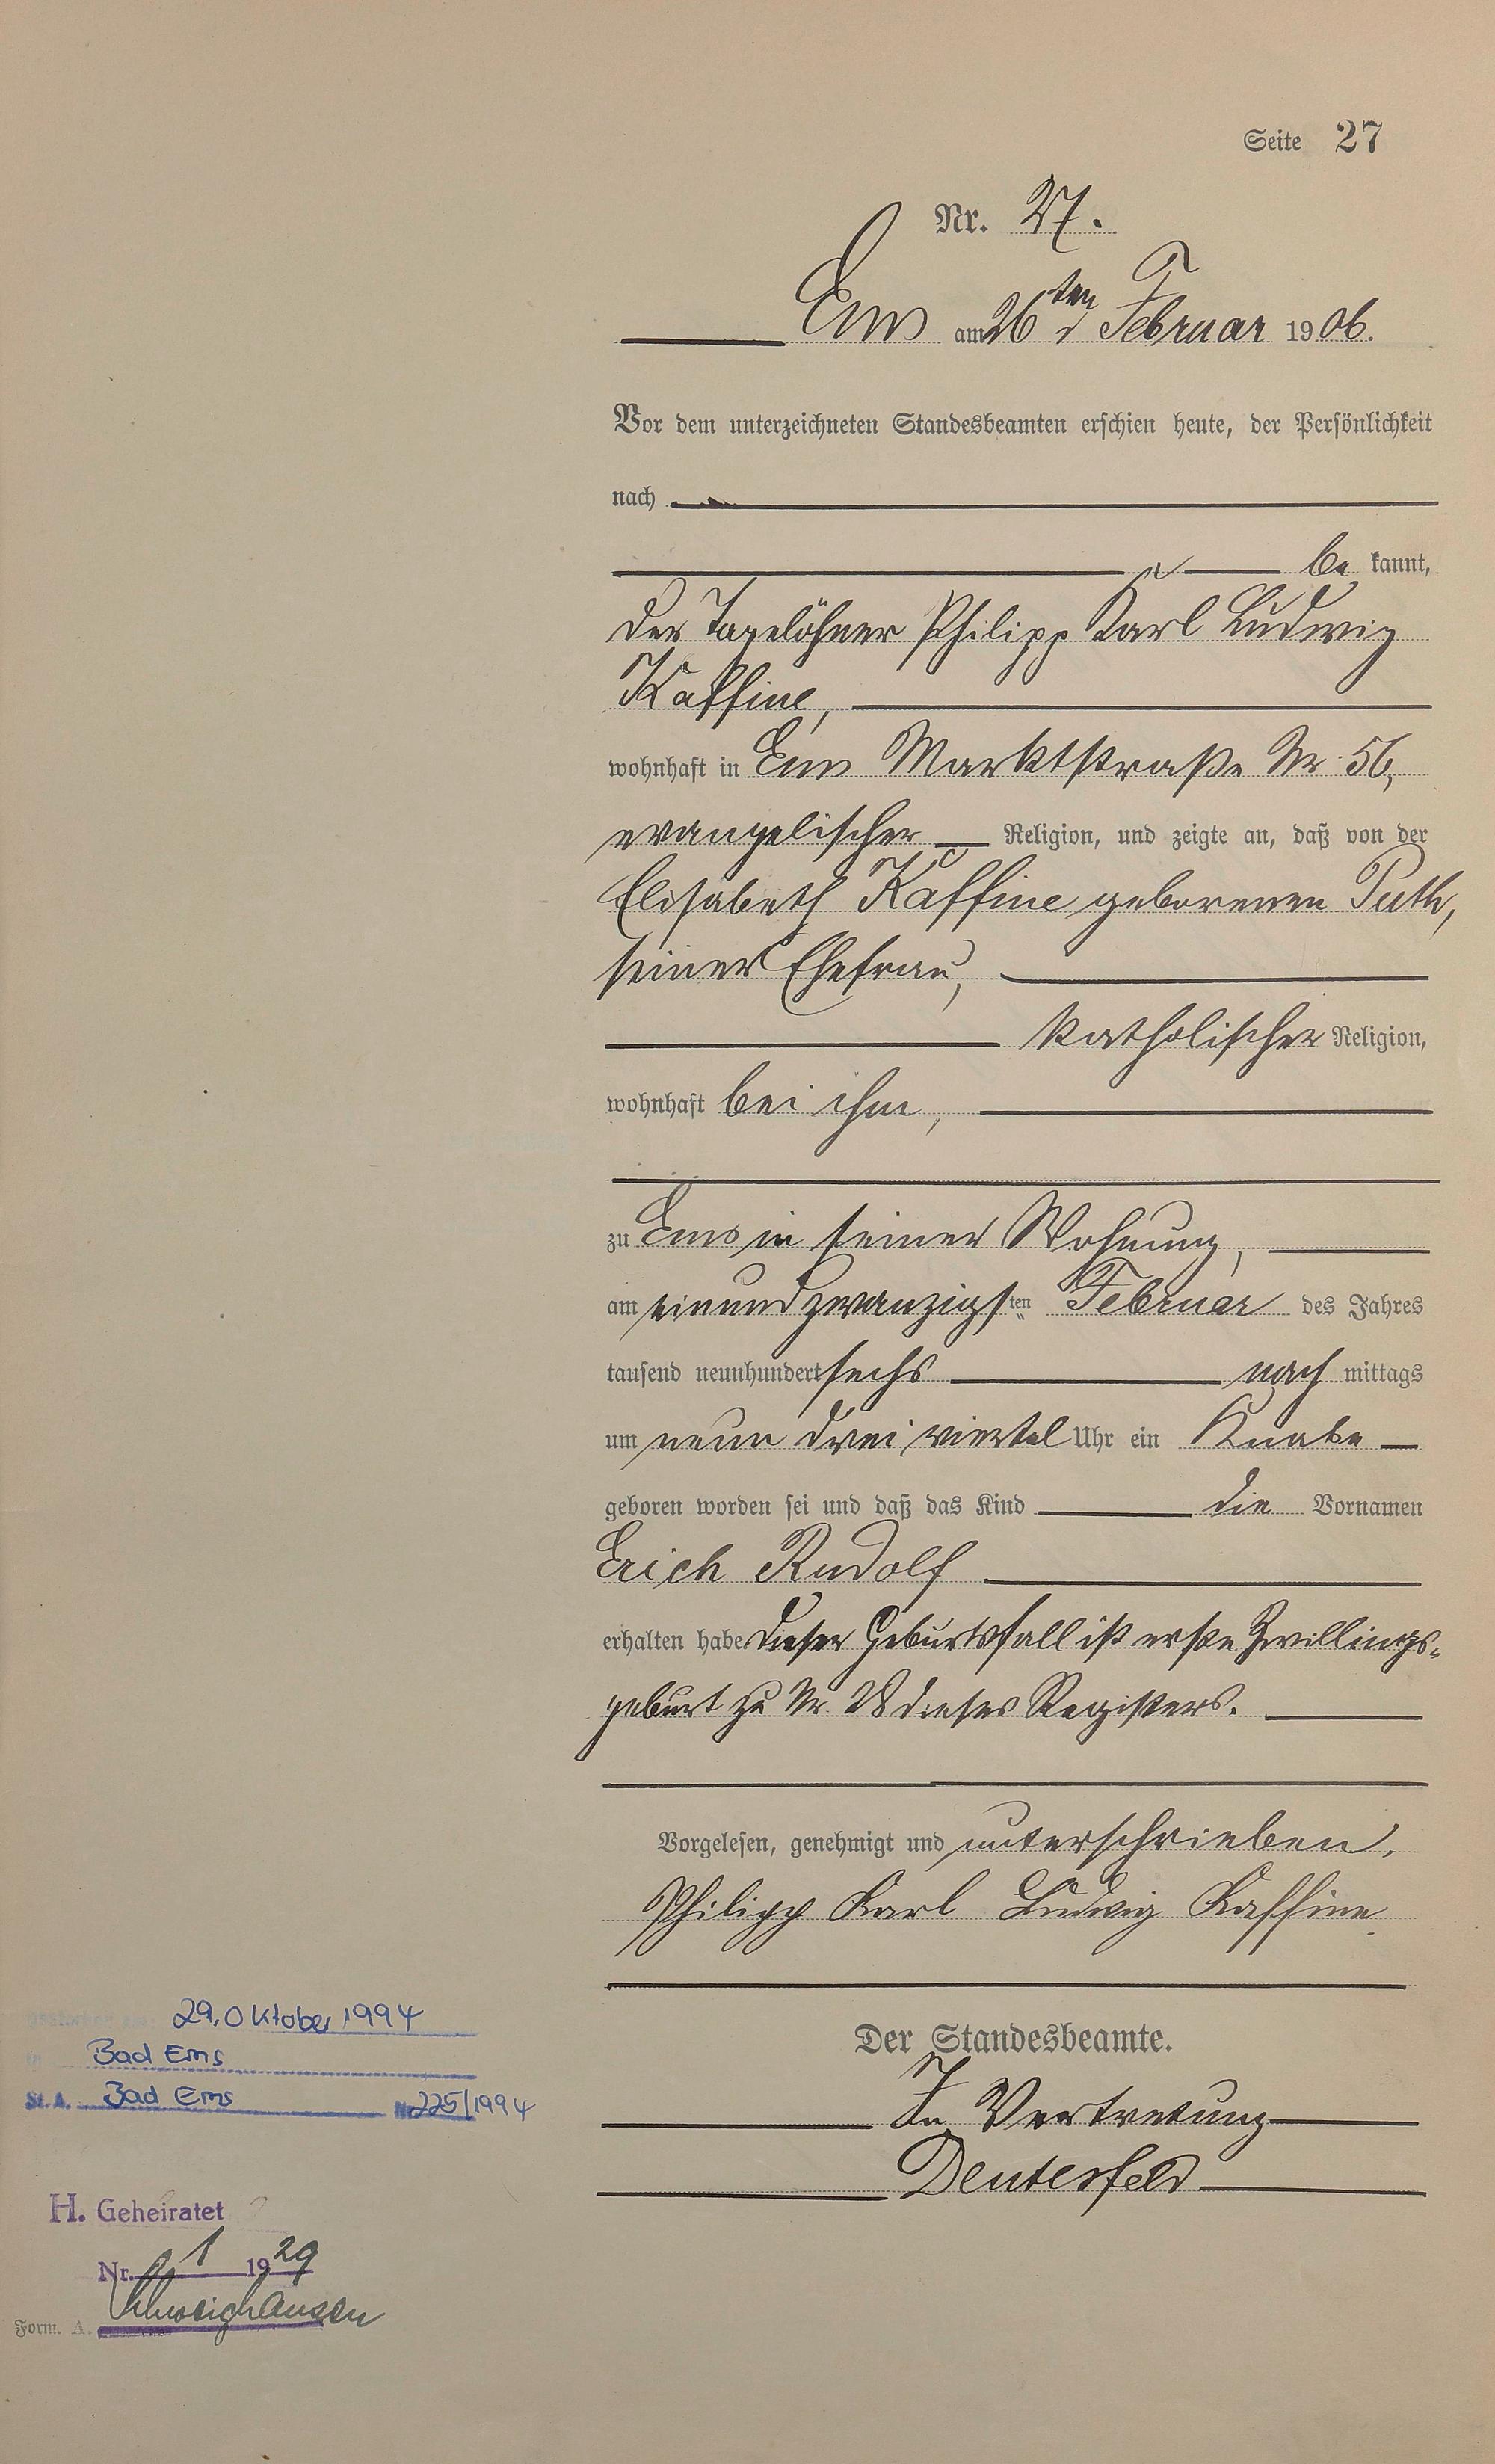 Seite 27
Nr. 27.
Ems am 26ten Februar 1906.
Vor dem unterzeichneten Standesbeamten erschien heute, der Persönlichkeit
nach
be kannt,
der Tagelöhner Philipp Karl Ludwig
Kaffine,
wohnhaft in Ems Marktstraße Nr. 56,
evangelischer Religion, und zeigte an, daß von der
Elisabeth Kaffine geborenen Puth,
seiner Ehefrau,
katholischer Religion,
wohnhaft bei ihm,
zu Ems in seiner Wohnung,
am einundzwanzigsten Februar des Jahres
tausend neunhundert sechs nach mittags
um neun drei viertel Uhr ein Knabe
geboren worden sei und daß das Kind die Vornamen
Erich Rudolf
erhalten habe. Dieser Geburtsfall ist erste Zwillings-
geburt zu Nr. 28 dieses Registers.
Vorgelesen, genehmigt und unterschrieben.
Philipp Karl Ludwig Kaffine
Der Standesbeamte.
In Vertretung
Deutesfeld
gestorben am 29. Oktober 1994
in Bad Ems
St. A. Bad Ems Nr. 225/1994
H. Geheiratet
Nr. 1 1929
Schweighausen
Form. A.